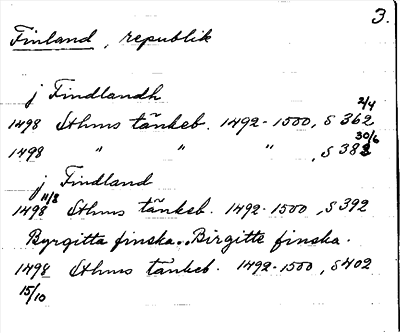 3.
Finland, republik
j Findlandh
2/4
1498 Sthms tänkeb. 1492-1500, s 362
30/6
1498 " " " , s 383
j Findland
11/8
1498 Sthms tänkeb. 1492-1500, s 392
Byrgitta finska.. Birgitte finska.
1498 Sthms tänkeb. 1492-1500, s 402
15/10